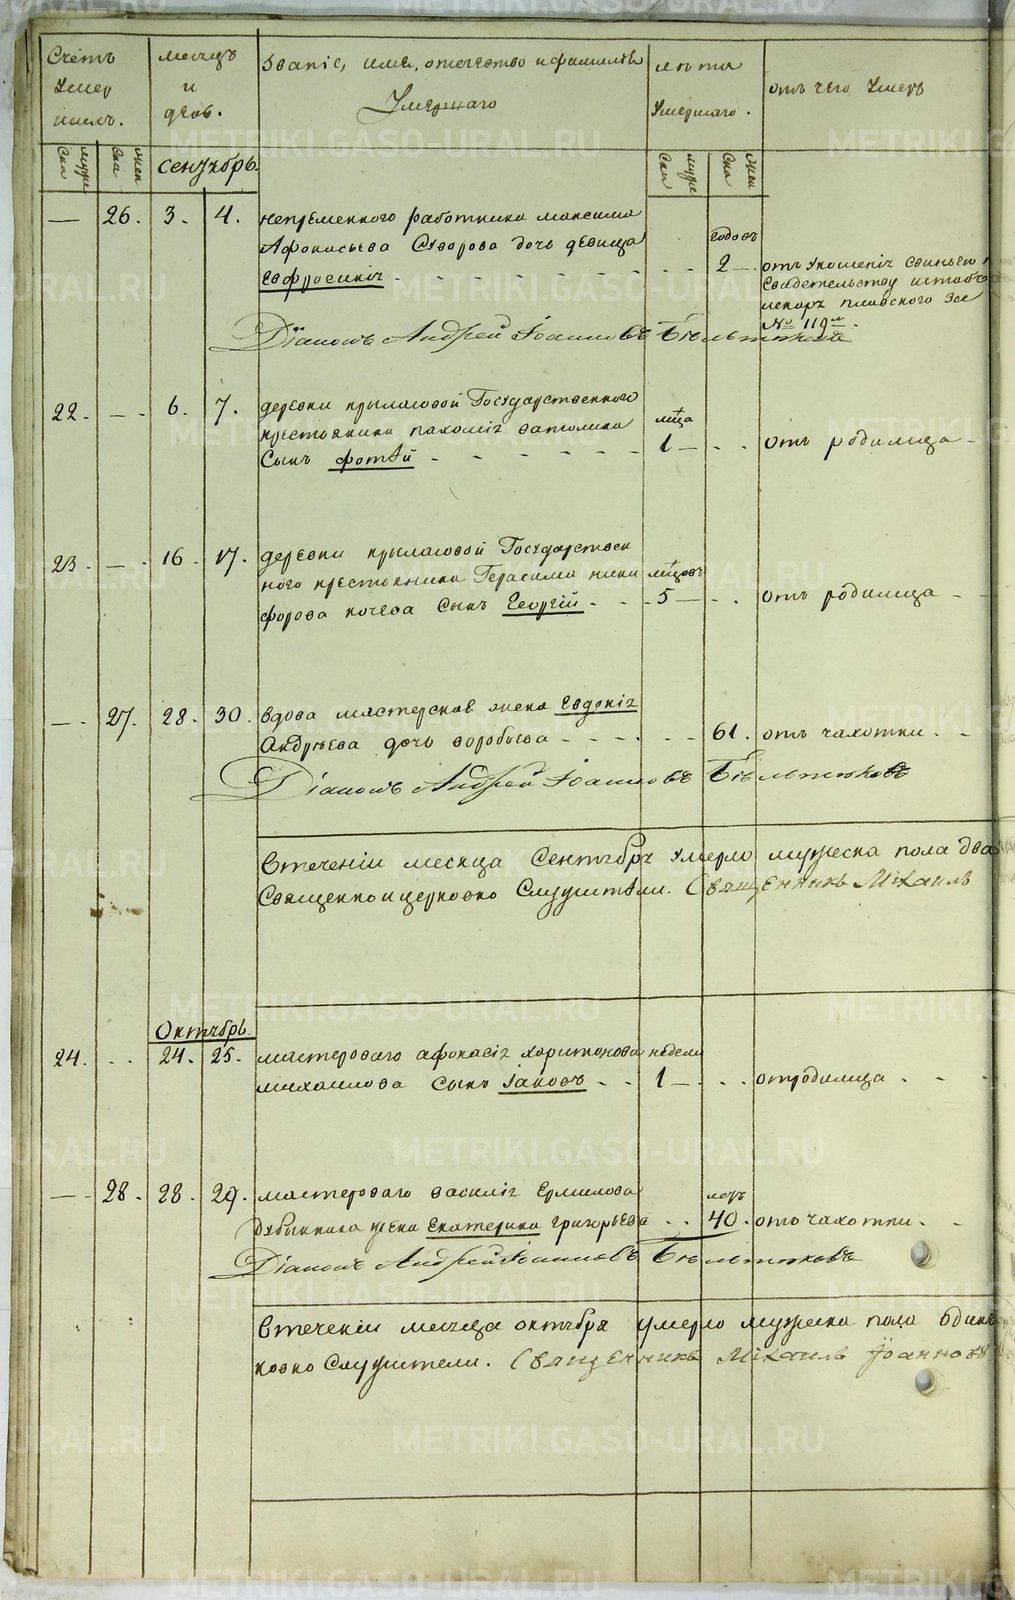 Счетъ умер шихъ.
месяцъ и день.
Званіе, имя, отечество и фамилія Умершаго
лѣта Умершаго.
отъ чего умеръ
муже ска
жен ска
Сентябрь.
муже ска
жен ска
— 26. 3. 4. непременного работника максима
Афонасьева дочь девица годовъ
Евфросинія 2 — отъ укошенія свиньею по
свидетельству штабъ
лекаря
№ 119
Діаконъ Андрей Іоанновъ
22. — 6. 7. деревни крыласовой Государственного
крестьянина пахомія мца
Сынъ фотій 1 — отъ родимца
23. — 16. 17. деревни крыласовой Государствен
ного крестьянина Герасима ники мцовъ
форова сынъ Георгій 5 — отъ родимца
— 27. 28. 30. вдова мастерская жена Евдокія
Андреева дочь воробьева 61. отъ чахотки.
Діаконъ Андрей Іоанновъ
Втеченіи месяца Сентября умерло мужеска пола два
Священноцерковно Служители. Священникъ Михаилъ
Октябрь.
24. 24. 25. мастероваго афонасія харитонова недели
михаилова сынъ Іаковъ 1 — отродимца
— 28. 28. 29. мастероваго василія Ермилова летъ
жена Екатерина григорьева 40. отъ чахотки.
Діаконъ Андрей Іоанновъ
Втеченіи месяца октября умерло мужеска пола одинъ
ковно Служители. Священникъ Михаилъ Іоанновъ
METRIKI.GASO-URAL.RU